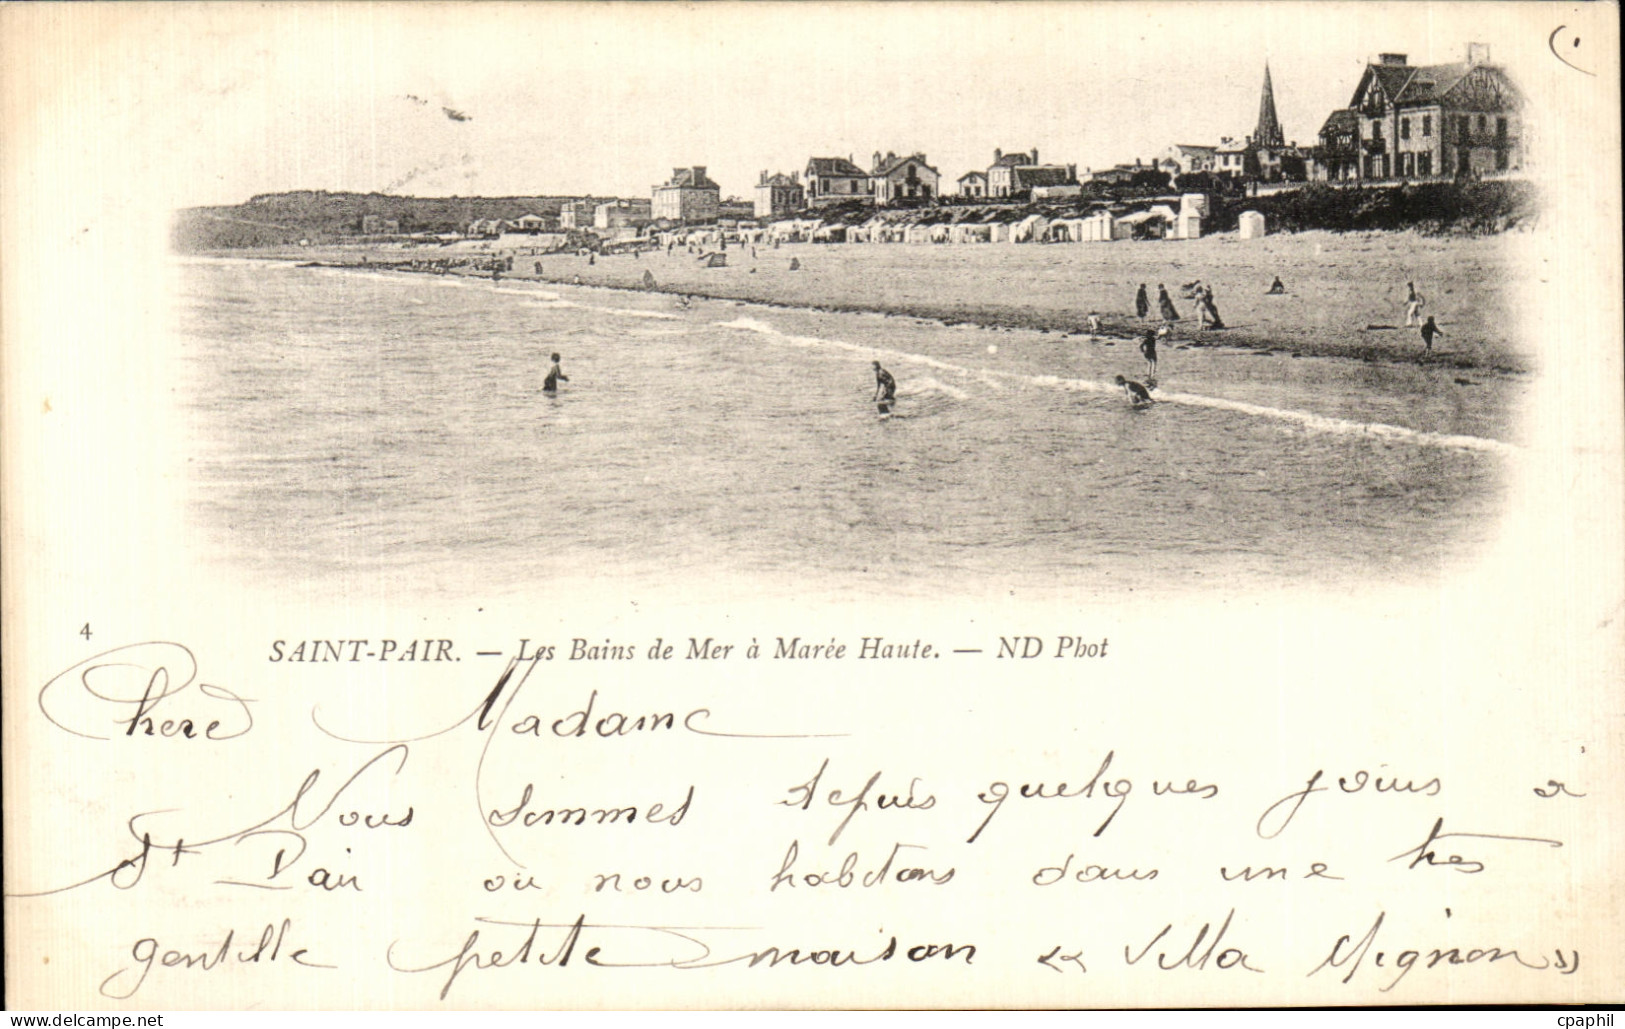 4
SAINT-PAIR. — Les Bains de Mer à Marée Haute. — ND Phot
Chere Madame
Nous sommes depuis quelques jours a
St Pair ou nous habitons dans une tres
gentille petite maison « Villa Mignon »
cpaphil